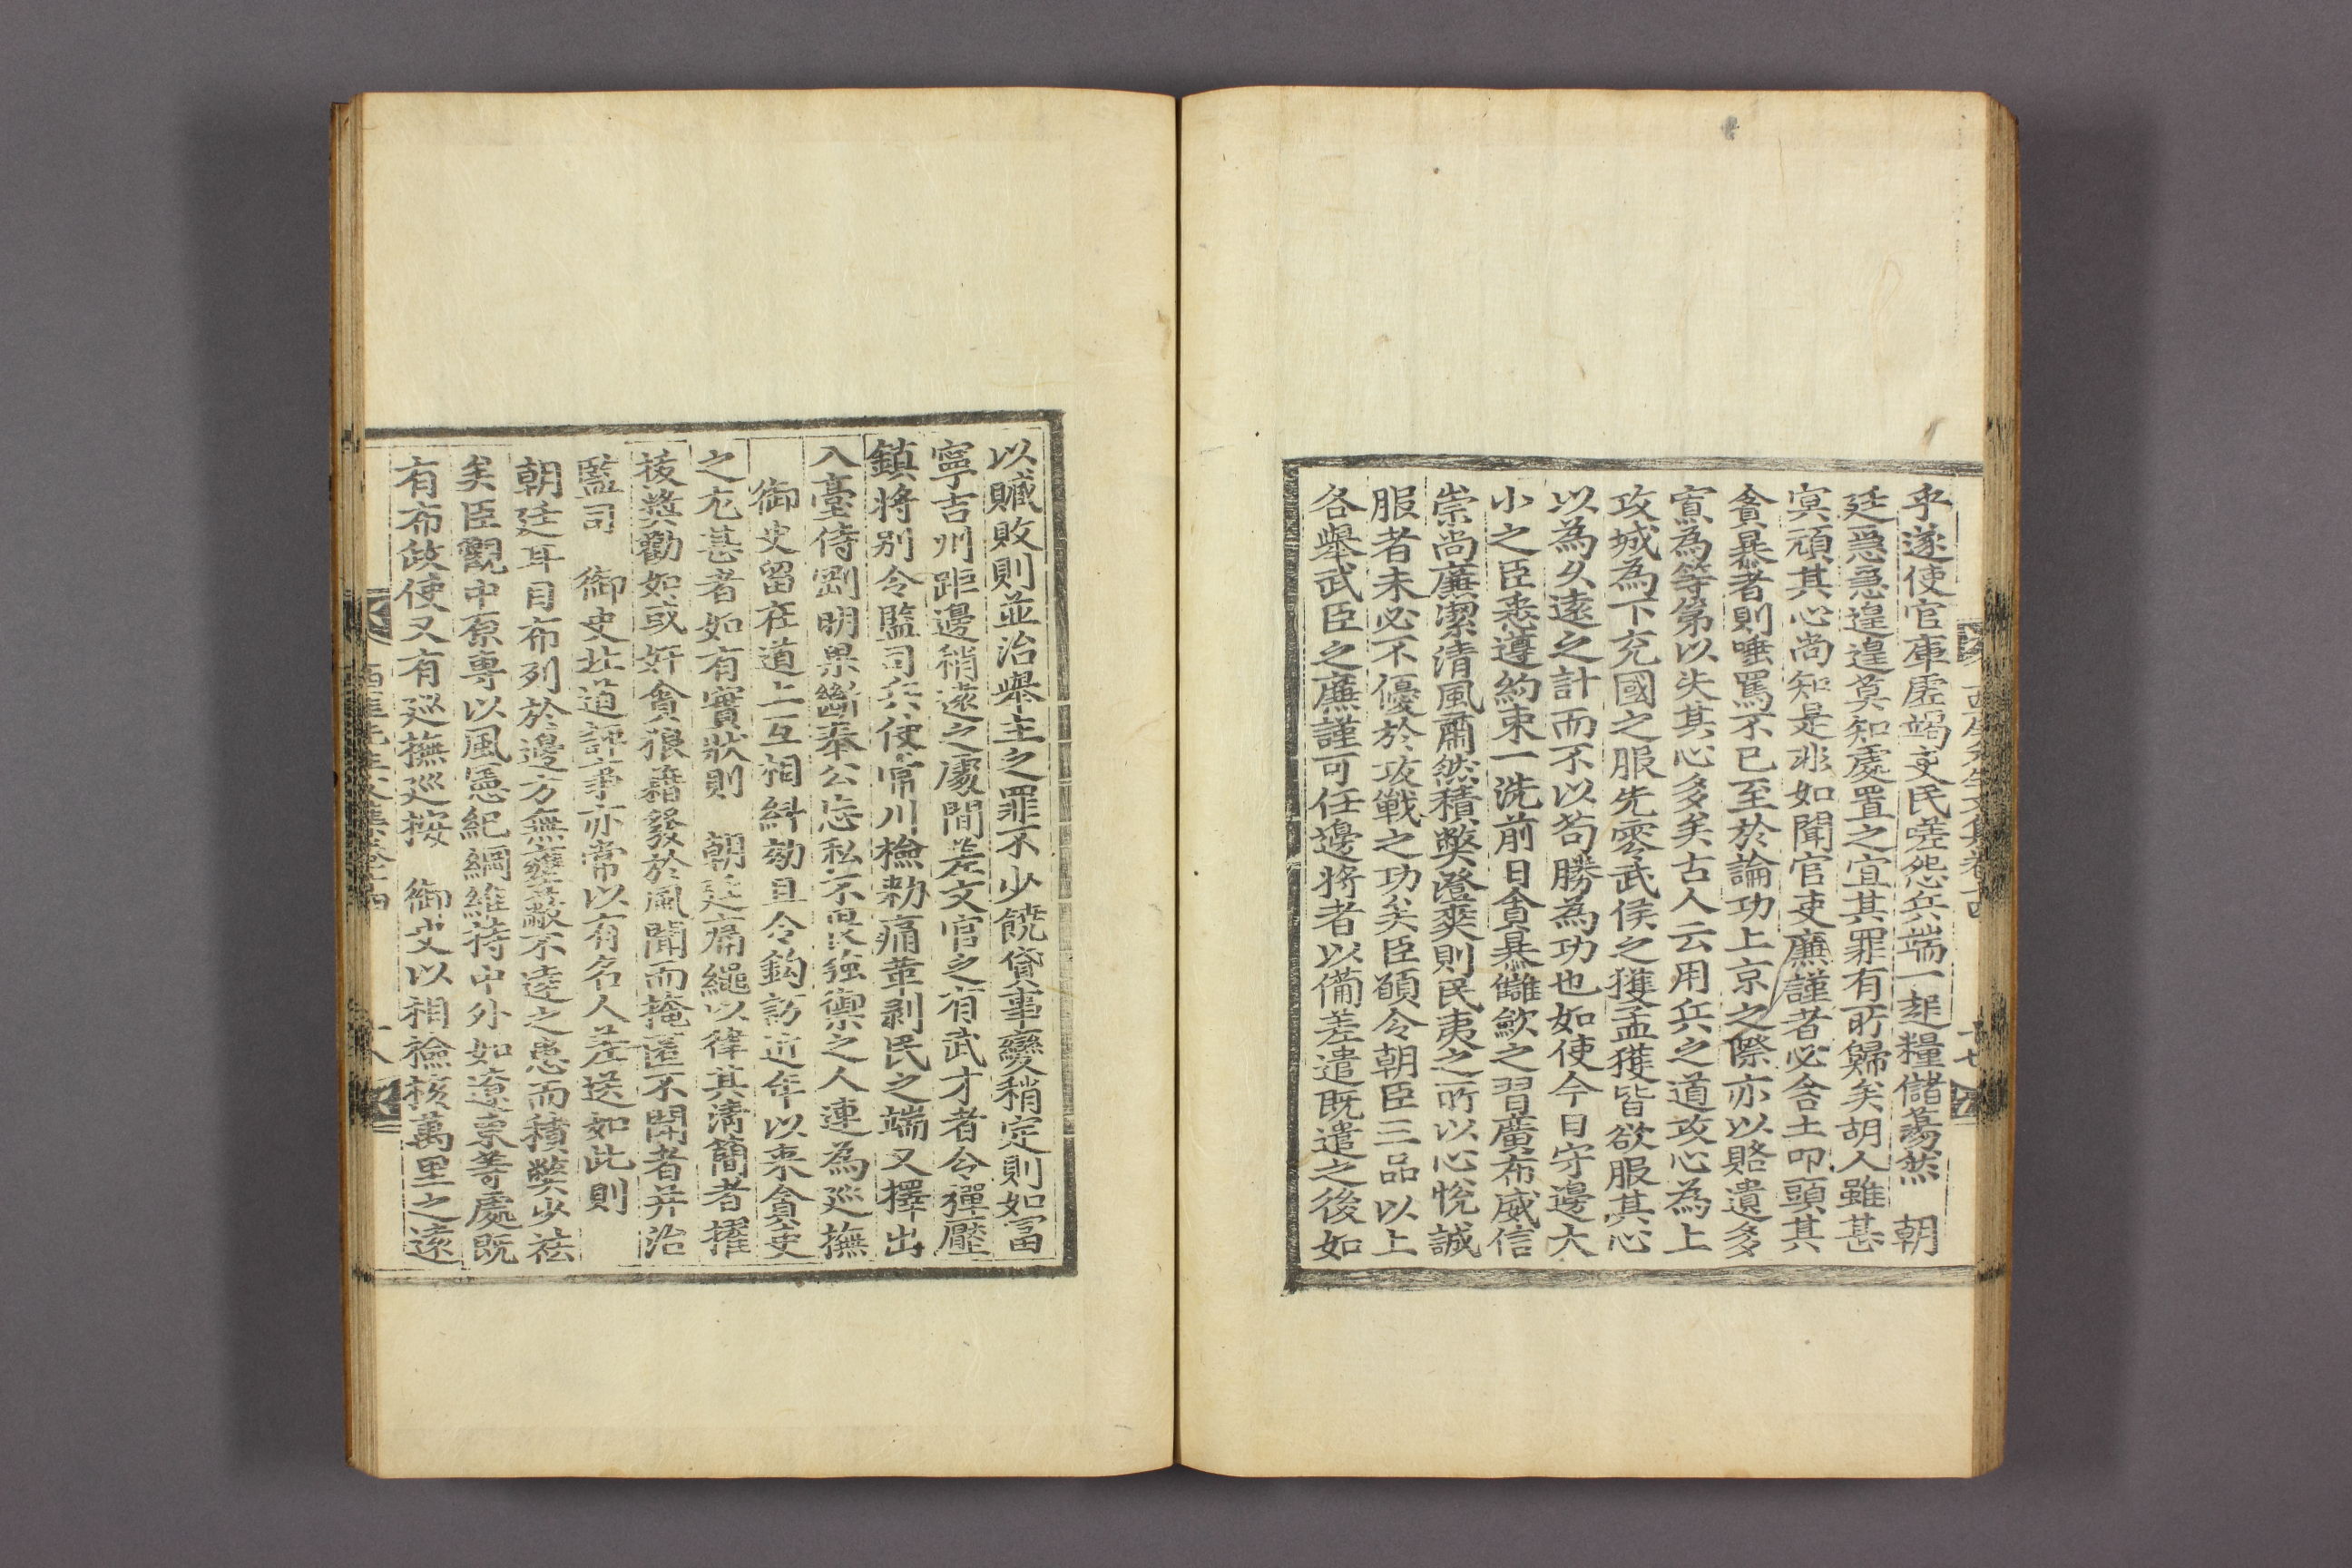 西厓先生文集卷十四
十七
乎遂使官庫虛竭吏民嗟怨兵端一起糧儲蕩然 朝
廷爲急遑遑莫知處置之宜其罪有所歸矣胡人雖甚
冥頑其心尚知是非如聞官吏廉謹者必含土叩頭其
貪暴者則唾罵不已至於論功上京之際亦以賂遺多
寡為等第以失其心多矣古人云用兵之道攻心為上
攻城為下充國之服先零武侯之獲孟獲皆欲服其心
以為久遠之計而不以苟勝為功也如使今日守邊大
小之臣悉遵約束一洗前日貪暴讎歛之習廣布威信
崇尚廉潔清風肅然積弊澄爽則民夷之所以心悅誠
服者未必不優於攻戰之功矣臣額令朝臣三品以上
各舉武臣之廉謹可任邊將者以備差遣既遣之後如
以贓敗則並治舉主之罪不少饒貸事變稍定則如富
寧吉州距邊稍遠之處間差文官之有武才者令彈壓
鎮將別令監司兵使常川檢勑痛革剥民之端又擇出
入臺侍剛明果斷奉公忘私不畏强禦之人連為巡撫
御史留在道上互相糾劾且令鉤訪近年以來貪吏
之尤甚者如有實狀則 朝廷痛繩以律其淸簡者擢
拔奬勸如或奸貪狼藉發於風聞而掩匿不聞者并治
監司 御史北道評事亦常以有名人差送如此則
朝廷耳目布列於邊方無壅蔽不逹之患而積弊少祛
矣臣觀中原專以風憲紀綱維持中外如遼東等處既
有布政使又有巡撫巡按 御史以相檢核萬里之遠
西厓先生文集卷十四
十八